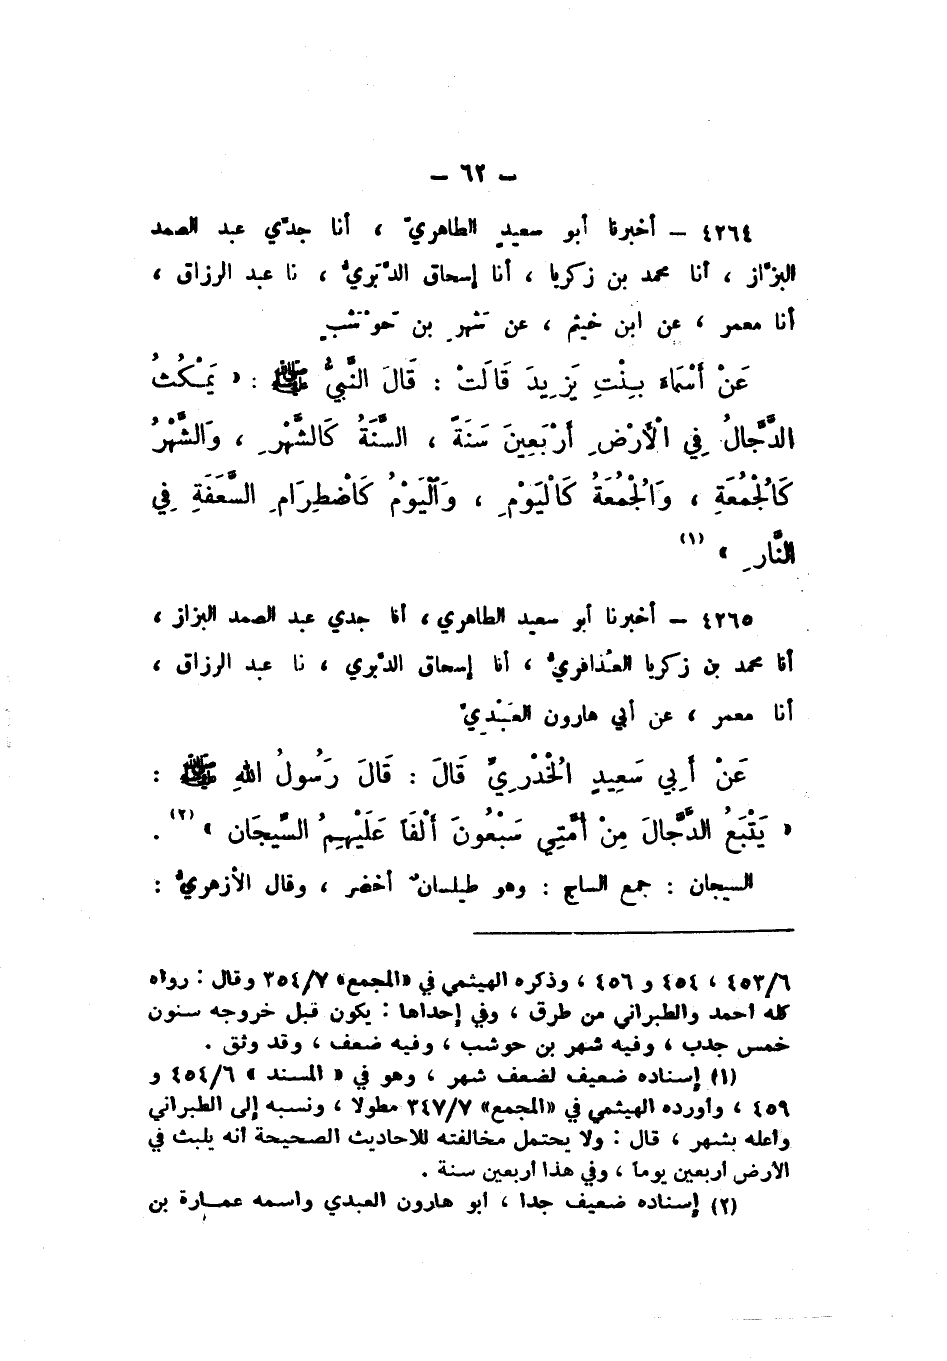 – ٦٢ –
٤٢٦٤ – أخبرنا أبو سعيدٍ الطاهريّ ، أنا جدّي عبد الصمد
البزّاز ، أنا محمد بن زكريا ، أنا إسحاق الدَّبَريُّ ، نا عبد الرزاق ،
أنا معمر ، عن ابن خيثم ، عن شهرِ بن حَوْشَبٍ
عَنْ أَسْمَاءَ بِنْتِ يَزِيدَ قَالَتْ : قَالَ النَّبِيُّ ﷺ : « يَمْكُثُ
الدَّجَّالُ فِي الْأَرْضِ أَرْبَعِينَ سَنَةً ، السَّنَةُ كَالشَّهْرِ ، وَالشَّهْرُ
كَالْجُمُعَةِ ، وَالْجُمُعَةُ كَالْيَوْمِ ، وَالْيَوْمُ كَاضْطِرَامِ السَّعَفَةِ فِي
النَّارِ » (١)
٤٢٦٥ – أخبرنا أبو سعيد الطاهري ، أنا جدي عبد الصمد البزاز ،
أنا محمد بن زكريا العُذافريُّ ، أنا إسحاق الدَّبري ، نا عبد الرزاق ،
أنا معمر ، عن أبي هارون العَبْدِيّ
عَنْ أَبِي سَعِيدٍ الْخُدْرِيِّ قَالَ : قَالَ رَسُولُ اللهِ ﷺ :
« يَتْبَعُ الدَّجَّالَ مِنْ أُمَّتِي سَبْعُونَ أَلْفًا عَلَيْهِمُ السِّيجَان » (٢) .
السيجان : جمع الساج : وهو طيلسانٌ أخضر ، وقال الأزهريُّ :
٤٥٣/٦ ، ٤٥٤ و ٤٥٦ ، وذكره الهيثمي في «المجمع» ٣٥٤/٧ وقال : رواه
كله أحمد والطبراني من طرق ، وفي إحداها : يكون قبل خروجه سنون
خمس جدب ، وفيه شهر بن حوشب ، وفيه ضعف ، وقد وثق .
(١) إسناده ضعيف لضعف شهر ، وهو في « المسند » ٤٥٤/٦ و
٤٥٩ ، وأورده الهيثمي في «المجمع» ٣٤٧/٧ مطولا ، ونسبه إلى الطبراني
وأعله بشهر ، قال : ولا يحتمل مخالفته للأحاديث الصحيحة أنه يلبث في
الأرض أربعين يوماً ، وفي هذا أربعين سنة .
(٢) إسناده ضعيف جدا ، أبو هارون العبدي واسمه عمارة بن